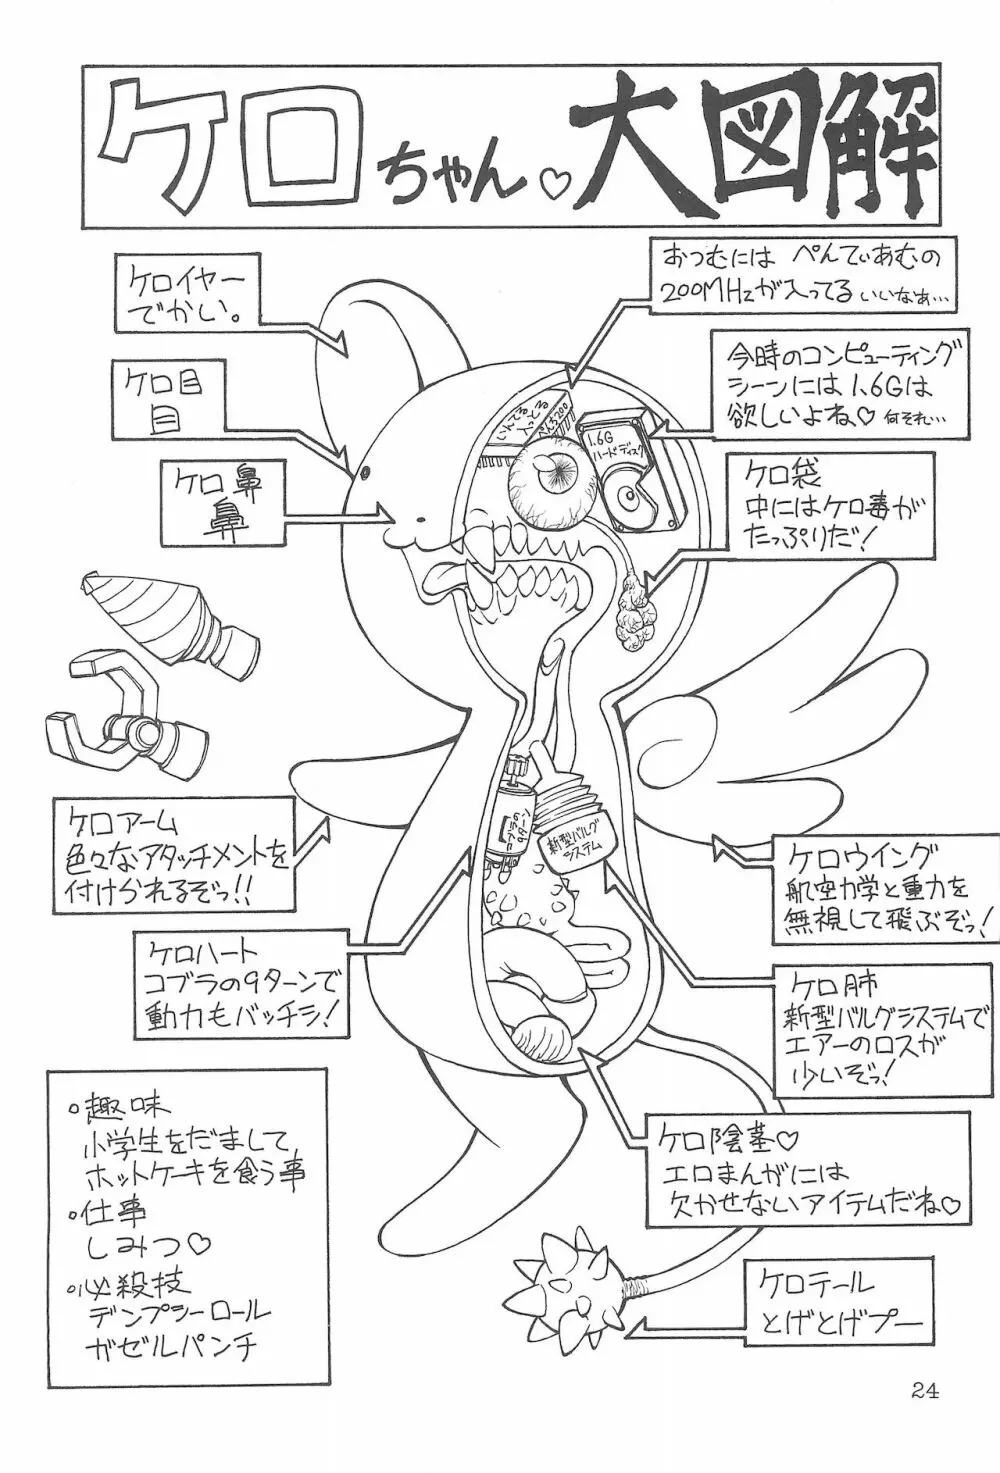 ケロちゃん♡大図解
ケロイヤー
でかい。
おつむには ぺんてぃあむの
200MHzが入ってる いいなぁ…
ケロ目
目
今時のコンピューティング
シーンには1.6Gは
欲しいよね♡ 何それ…
いんてる
入ってる
ぺん3200
1.6G
ハードディスク
ケロ鼻
鼻
ケロ袋
中にはケロ毒が
たっぷりだ!
ケロアーム
色々なアタッチメントを
付けられるぞっ!!
コブラの
9ターン
新型バルグ
システム
ケロウイング
航空力学と重力を
無視して飛ぶぞっ!
ケロハート
コブラの9ターンで
動力もバッチシ!
ケロ肺
新型バルグシステムで
エアーのロスが
少いぞっ!
・趣味
小学生をだまして
ホットケーキを食う事
・仕事
しみつ♡
・必殺技
デンプシーロール
ガゼルパンチ
ケロ陰茎♡
エロまんがには
欠かせないアイテムだね♡
ケロテール
とげとげプー
24